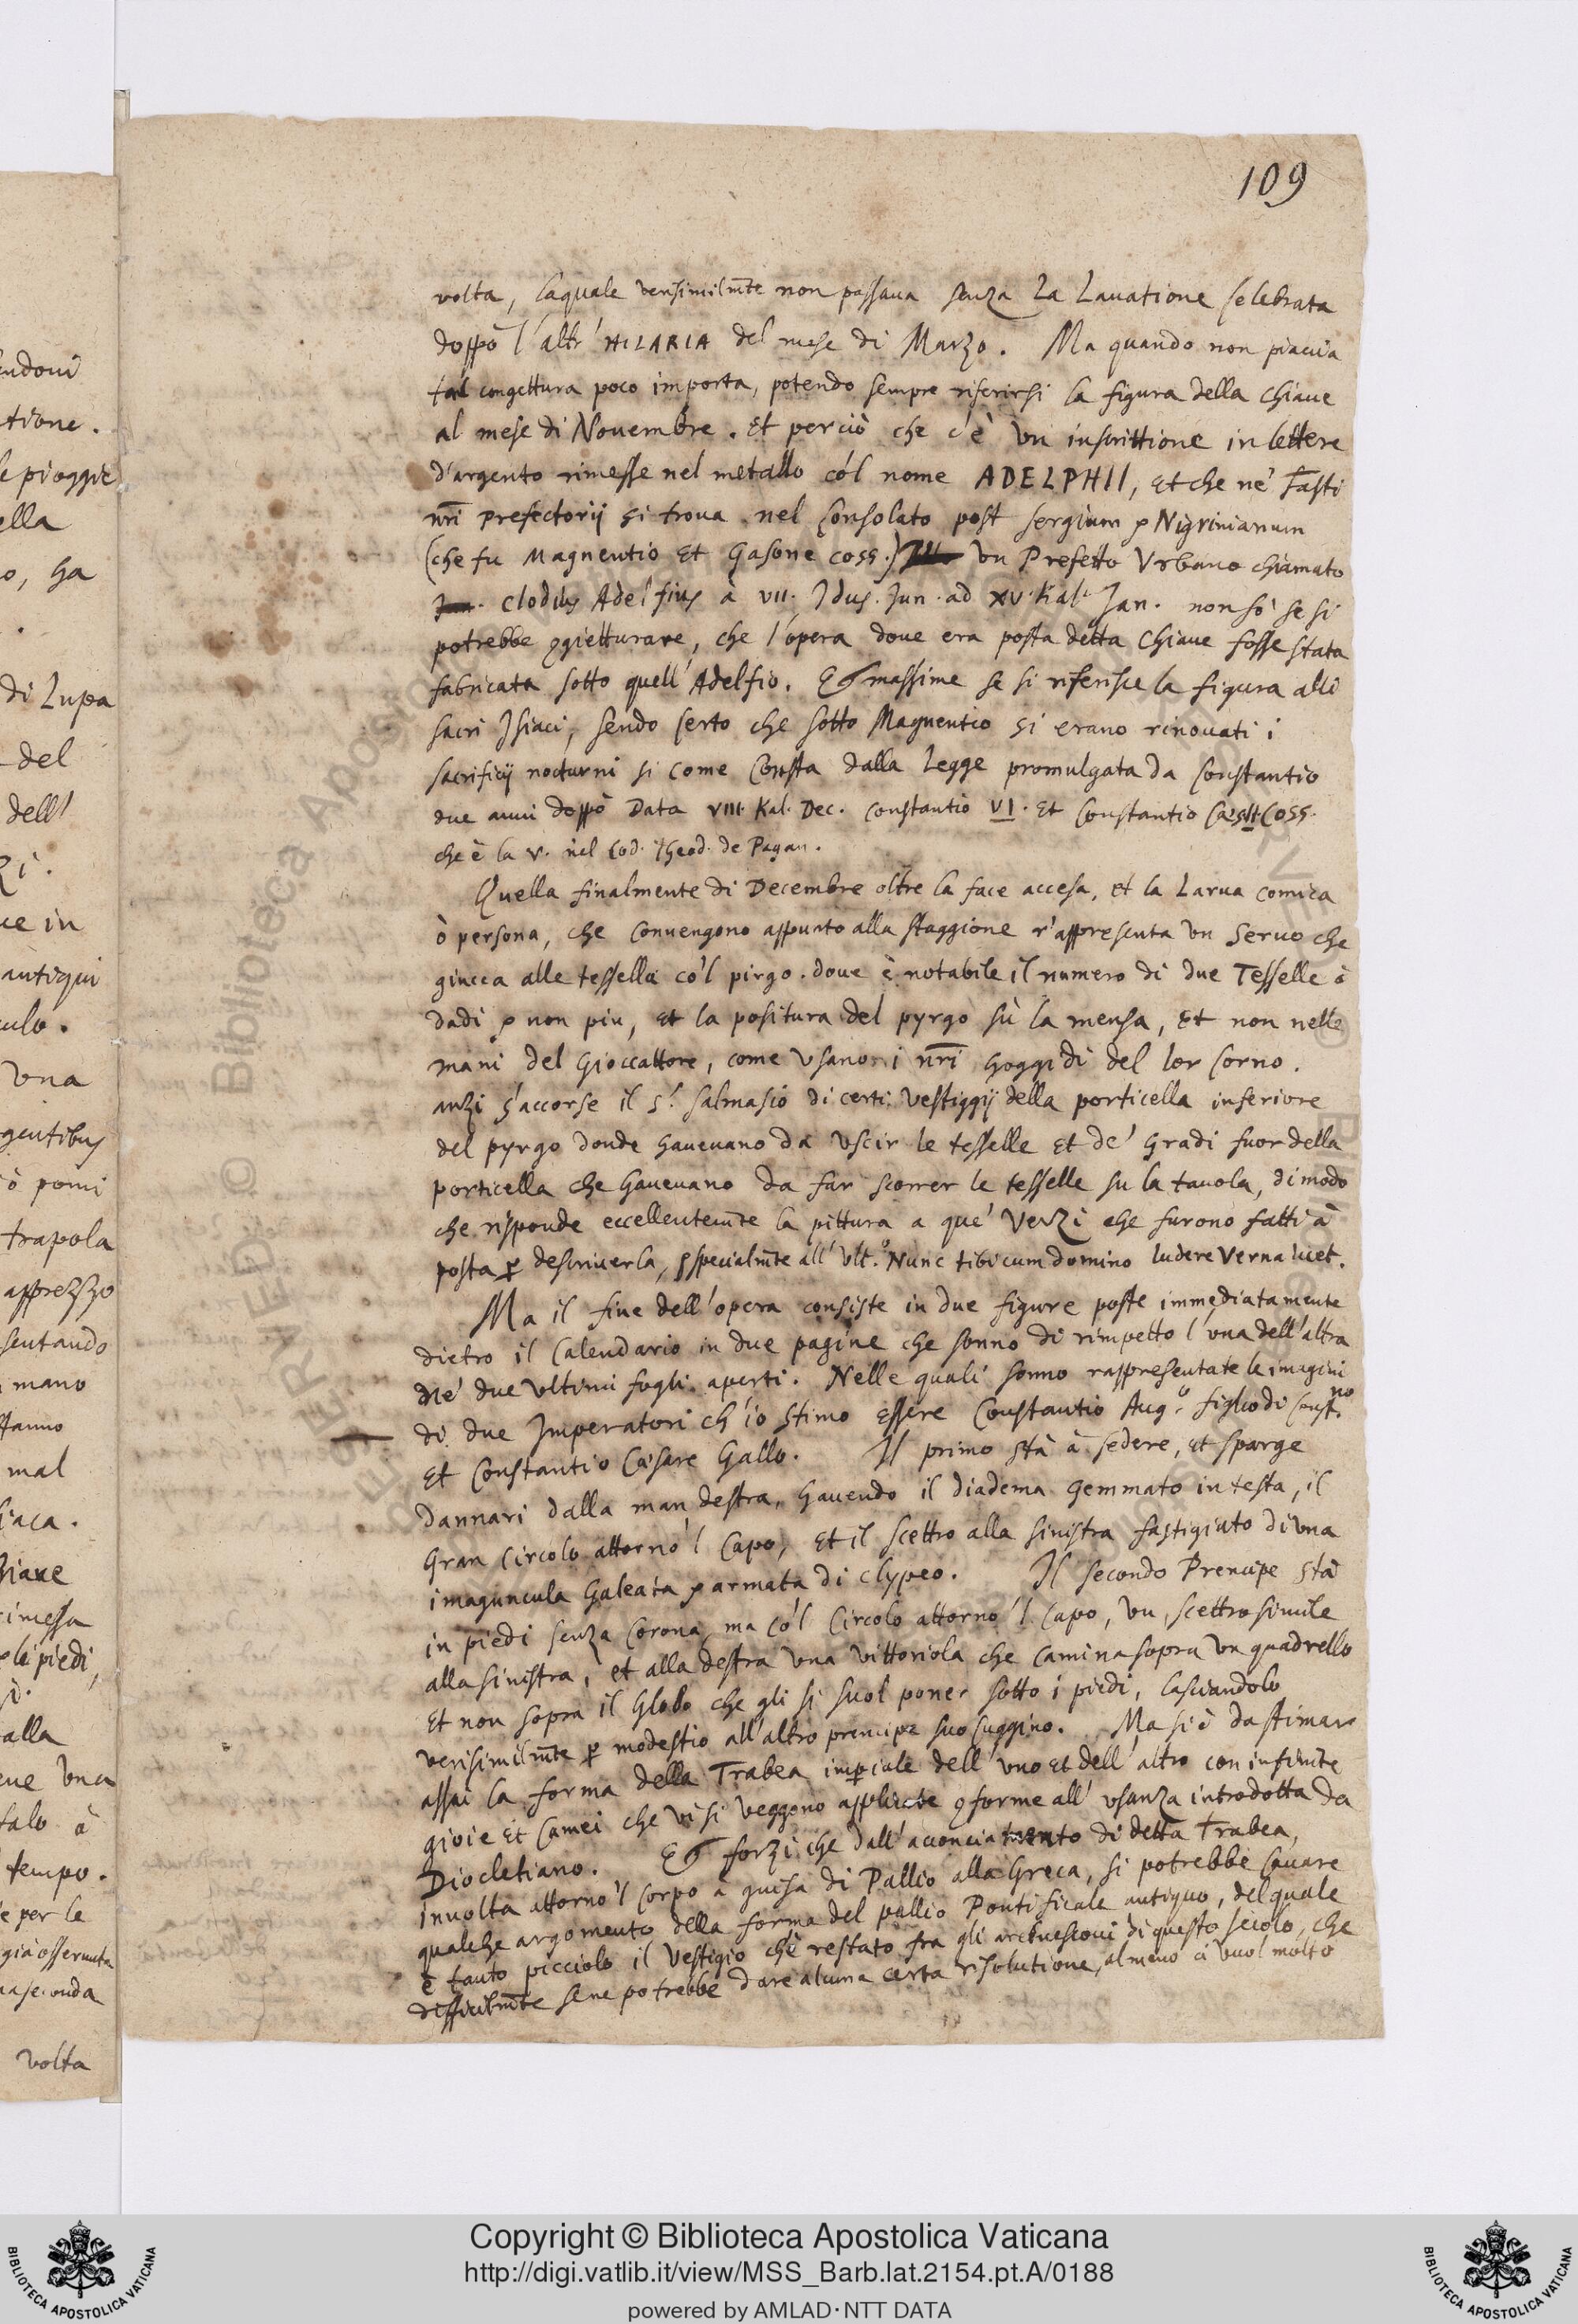 109
volta, laquale verisimilmte non passaua senza la Lauatione celebrata
doppò l'altr' HILARIA del mese di Marzo. Ma quando non piaccia
tal congettura poco importa, potendo sempre riferirsi la figura della chiaue
al mese di Nouembre. Et perciò che c'è un inscrittione in lettere
d'argento rimesse nel metallo co'l nome ADELPHII, et che ne' Fasti
nri prefectorij si troua nel Consolato post sergium & Nigrinianum
(che fu Magnentio et Gasone coss.) un Prefetto Urbano chiamato
Clodius Adelfius à VII. Idus. Jun. ad XV. Kal. Jan. non sò se si
potrebbe 9gietturare, che l'opera doue era posta detta Chiaue fosse stata
fabricata sotto quell'Adelfio. Et massime se si riferisce la figura alli
sacri Isiaci, sendo certo che sotto Magnentio si erano rinouati i
sacrificij nocturni si come Consta dalla Legge promulgata da Constantio
due anni doppò Data VIII. Kal. Dec. Constantio VI. Et Constantio Cæs. II. Coss.
che è la V. nel Cod. Theod. de Pagan.
Quella finalmente di Decembre oltre la face accesa, et la Larua comica
ò persona, che conuengono appunto alla staggione r'appresenta un seruo che
giucca alle tessella co'l pirgo. doue è notabile il numero di due Tesselle ò
dadi & non piu, et la positura del pyrgo sù la mensa, et non nelle
mani del Gioccattore, come usano i nri hoggidì del lor corno.
anzi s'accorse il Sr. Salmasio di certi vestiggij della porticella inferiore
del pyrgo donde haueuano da uscir le tesselle et de' gradi fuor della
porticella che haueuano da far scorrer le tesselle su la tauola, di modo
che risponde eccellentemte la pittura a que' Verzi che furono fatti à
posta p descriuerla, & specialmte all' ult.o Nunc tibi cum domino ludere verna licet.
Ma il fine dell'opera consiste in due figure poste immediatamente
dietro il Calendario in due pagine che sonno di rimpetto l'una dell'altra
ne' due ultimi fogli aperti. Nelle quali sonno rappresentate le imagini
di due Imperatori ch'io stimo essere Constantio Aug.o figlio di Const.no
Et Constantio Cæsare Gallo. Il primo stà à sedere, et sparge
dannari dalla man destra, hauendo il diadema gemmato in testa, il
gran circolo attorno'l capo, et il scettro alla sinistra fastigiato di una
imaguncula galeata & armata di clypeo. Il secondo Prencipe stà
in piedi senza corona, ma co'l circolo attorno'l capo, un scettro simile
alla sinistra, et alla destra una vittoriola che camina sopra un quadrello
Et non sopra il Globo che gli si suol poner sotto i piedi, lasciandolo
verisimilmte p modestio all'altro prencipe suo cuggino. Ma si è da stimar
assai la forma della Trabea imperiale dell' uno et dell' altro con infinite
gioie et Camei che vi si veggono applicate 9forme all' usanza introdotta da
Diocletiano. Et forzi che dall'acconciamento di detta Trabea,
inuolta attorno'l corpo à guisa di Pallio alla Greca, si potrebbe cauare
qualche argomento della forma del pallio Pontificale antiquo, del quale
è tanto picciolo il Vestigio chè restato fra gli arciuescoui di questo secolo, che
difficilmte sene potrebbe dare alcuna certa risolutione, almeno ci vuol molto
di Lupa
del
dell'
antiqui
una
ò pomi
trapola
mano
mal
alla
tempo.
volta
Copyright © Biblioteca Apostolica Vaticana
http://digi.vatlib.it/view/MSS_Barb.lat.2154.pt.A/0188
powered by AMLAD·NTT DATA
BIBLIOTECA APOSTOLICA VATICANA
BIBLIOTECA APOSTOLICA VATICANA